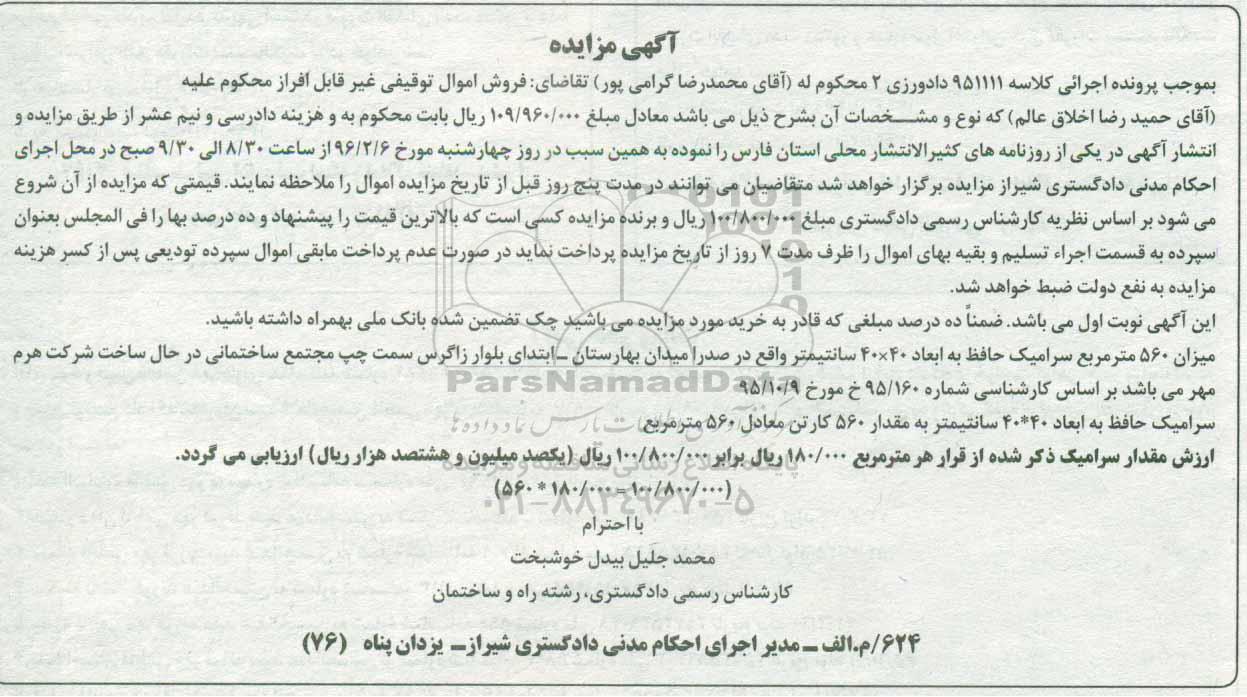 آگهی مزایده
بموجب پرونده اجرائی کلاسه ۹۵۱۱۱۱ دادورزی ۲ محکوم له (آقای محمدرضا گرامی پور) تقاضای: فروش اموال توقیفی غیر قابل افراز محکوم علیه
(آقای حمید رضا اخلاق عالم) که نوع و مشخصات آن بشرح ذیل می باشد معادل مبلغ ۱۰۹/۹۶۰/۰۰۰ ریال بابت محکوم به و هزینه دادرسی و نیم عشر از طریق مزایده و
انتشار آگهی در یکی از روزنامه های کثیرالانتشار محلی استان فارس را نموده به همین سبب در روز چهارشنبه مورخ ۹۶/۲/۶ از ساعت ۸/۳۰ الی ۹/۳۰ صبح در محل اجرای
احکام مدنی دادگستری شیراز مزایده برگزار خواهد شد متقاضیان می توانند در مدت پنج روز قبل از تاریخ مزایده اموال را ملاحظه نمایند. قیمتی که مزایده از آن شروع
می شود بر اساس نظریه کارشناس رسمی دادگستری مبلغ ۱۰۰/۸۰۰/۰۰۰ ریال و برنده مزایده کسی است که بالاترین قیمت را پیشنهاد و ده درصد بها را فی المجلس بعنوان
سپرده به قسمت اجراء تسلیم و بقیه بهای اموال را ظرف مدت ۷ روز از تاریخ مزایده پرداخت نماید در صورت عدم پرداخت مابقی اموال سپرده تودیعی پس از کسر هزینه
مزایده به نفع دولت ضبط خواهد شد.
این آگهی نوبت اول می باشد. ضمناً ده درصد مبلغی که قادر به خرید مورد مزایده می باشید چک تضمین شده بانک ملی بهمراه داشته باشید.
میزان ۵۶۰ مترمربع سرامیک حافظ به ابعاد ۴۰×۴۰ سانتیمتر واقع در صدرا میدان بهارستان ـ ابتدای بلوار زاگرس سمت چپ مجتمع ساختمانی در حال ساخت شرکت هرم
مهر می باشد بر اساس کارشناسی شماره ۹۵/۱۶۰ خ مورخ ۹۵/۱۰/۹
ParsNamadData
سرامیک حافظ به ابعاد ۴۰*۴۰ سانتیمتر به مقدار ۵۶۰ کارتن معادل ۵۶۰ مترمربع
ارزش مقدار سرامیک ذکر شده از قرار هر مترمربع ۱۸۰/۰۰۰ ریال برابر ۱۰۰/۸۰۰/۰۰۰ ریال (یکصد میلیون و هشتصد هزار ریال) ارزیابی می گردد.
پایگاه اطلاع رسانی مناقصه و مزایده
(۵۶۰ * ۱۸۰/۰۰۰ = ۱۰۰/۸۰۰/۰۰۰)
۰۲۱-۸۸۳۴۹۶۷۰-۵
با احترام
محمد جلیل بیدل خوشبخت
کارشناس رسمی دادگستری، رشته راه و ساختمان
۶۲۴/م.الف ـ مدیر اجرای احکام مدنی دادگستری شیراز ـ یزدان پناه (۷۶)